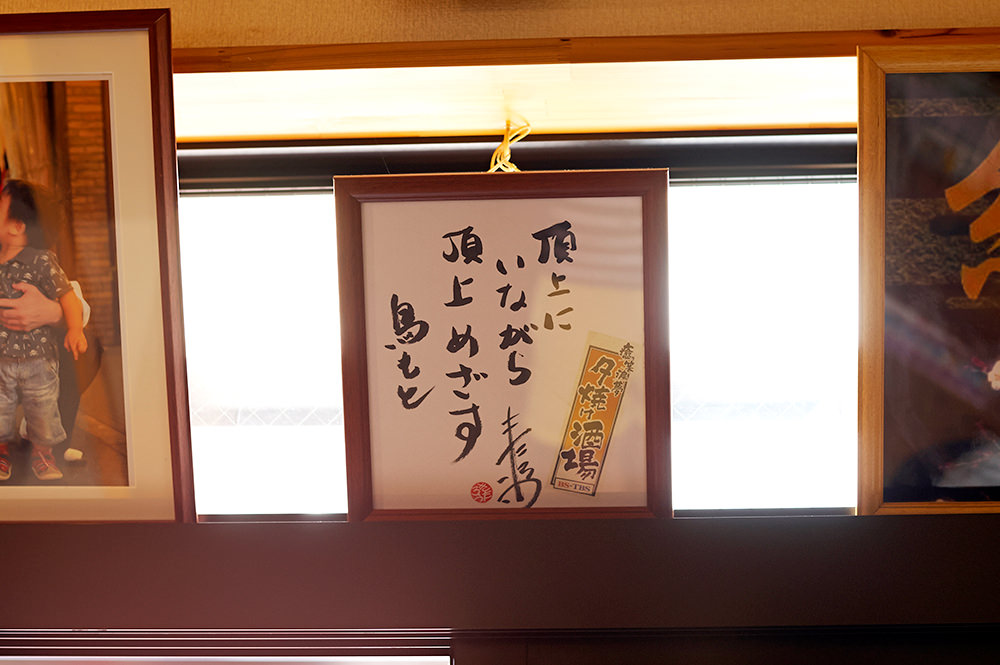 頂上に
いながら
頂上めざす
鳥もと
夕焼け酒場
BS-TBS